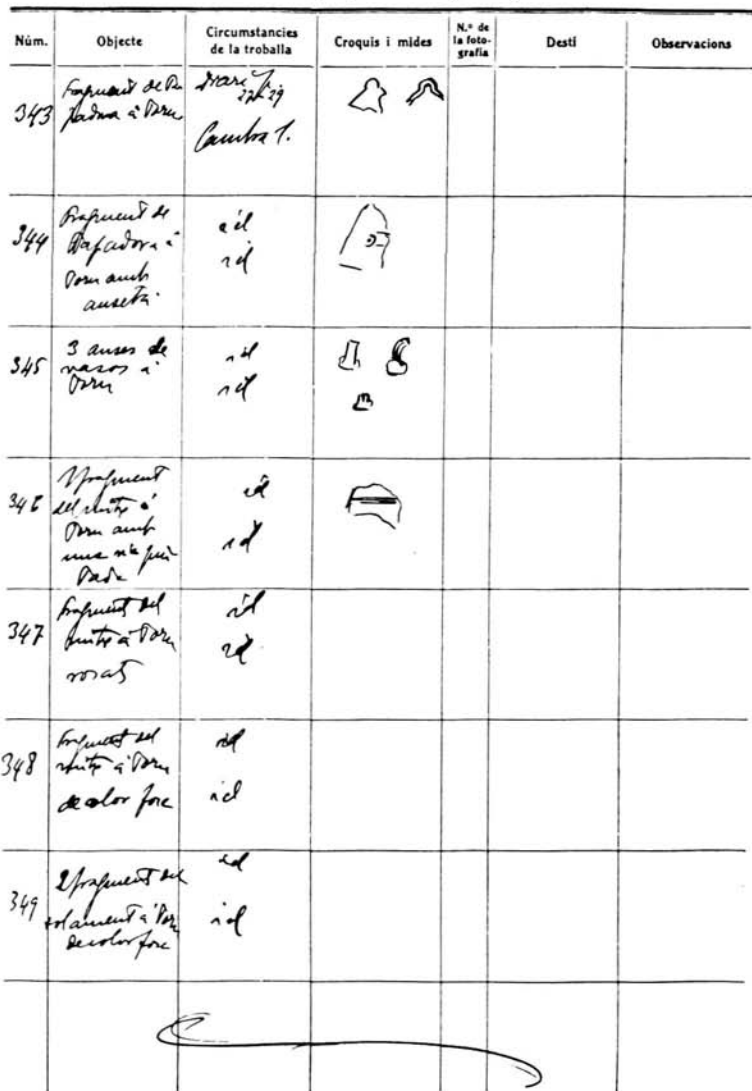 Núm.
Objecte
Circumstancies
de la troballa
Croquis i mides
N.º de
la foto-
grafia
Destí
Observacions
343
Fragment de
à torn
Diari
22-29
Cambra 1.
344
Fragment de
Tapadora à
torn amb
anseta.
id
id
345
3 anses de
vasos à
torn
id
id
346
1 fragment
del mitx à
torn amb
una
id
id
347
fragment del
mitx à torn
rosat
id
id
348
fragment del
mitx à torn
de color fosc
id
id
349
2 fragment del
à torn
de color fosc
id
id